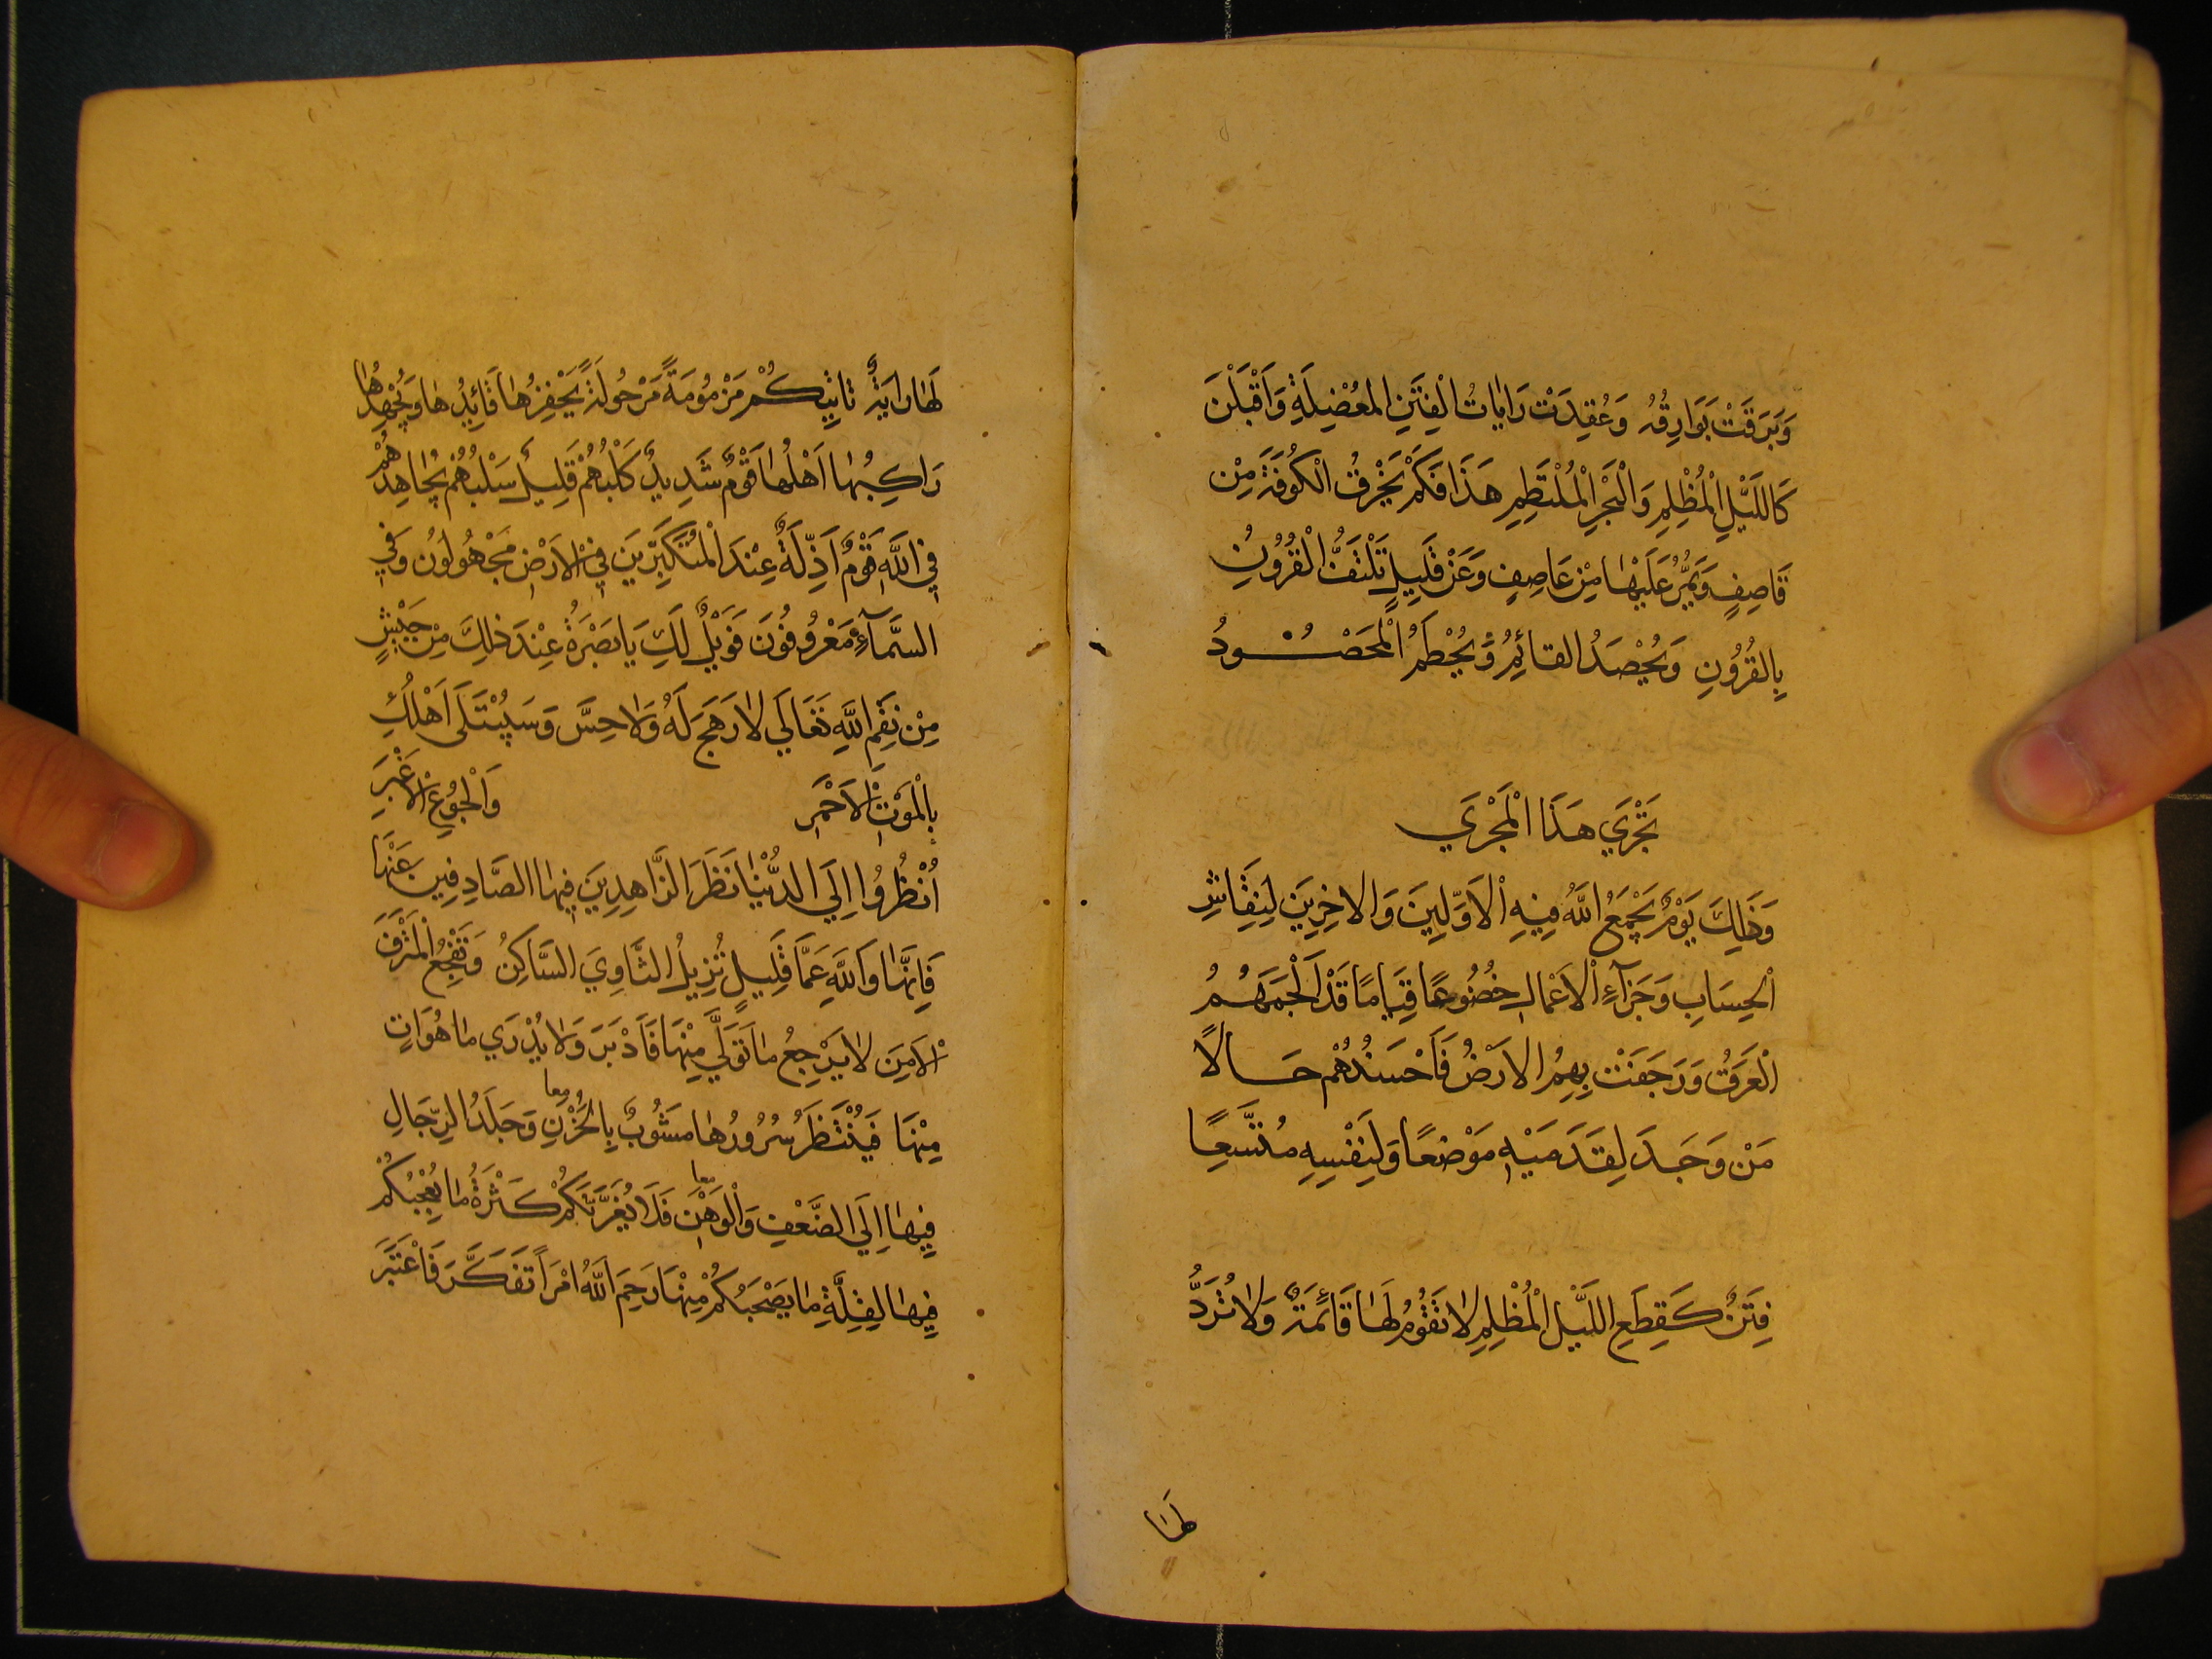 وَبَرَقَتْ بَوَارِقُهُ وَعُقِدَتْ رَايَاتُ الْفِتَنِ الْمُعْضِلَةِ وَاَقْبَلْنَ
كَاللَّيْلِ الْمُظْلِمِ وَالْبَحْرِ الْمُلْتَطِمِ هَذَا فَكَمْ يَخْرِقُ الْكُوفَةَ مِنْ
قَاصِفٍ وَيَمُرُّ عَلَيْهَا مِنْ عَاصِفٍ وَعَنْ قَلِيلٍ تَلْتَفُّ الْقُرُونُ
بِالْقُرُونِ وَيُحْصَدُ الْقَائِمُ وَيُحْطَمُ الْمَحْصُودُ
تَجْرِي هَذَا الْمَجْرَي
وَذَلِكَ يَوْمٌ يَجْمَعُ اللَّهُ فِيهِ الْاَوَّلِينَ وَالاخِرِينَ لِنِقَاشِ
الْحِسَابِ وَجَزَآءِ الْاَعْمَالِ خُضُوعًا قِيَامًا قَدْ اَلْجَمَهُمُ
الْعَرَقُ وَرَجَفَتْ بِهِمُ الارَضُ فَاَحْسَنُهُمْ حَالًا
مَنْ وَجَدَ لِقَدَمَيْهِ مَوْضِعًا وَلِنَفْسِهِ مُتَّسَعًا
فِتَنٌ كَقِطَعِ اللَّيْلِ الْمُظْلِمِ لَا تَقُومُ لَهَا قَائِمَةٌ وَلَا تُرَدُّ
لها
لَهَا رَايَةٌ تَاتِيكُمْ مَزْمُومَةً مَرْحُولَةً يَحْفِزُهَا قَائِدُهَا وَيُجْهِدُهَا
رَاكِبُهَا اَهْلُهَا قَوْمٌ شَدِيدٌ كَلْبُهُمْ قَلِيلٌ سَلْبُهُمْ يُجَاهِدُهُمْ
فِي اللَّهِ قَوْمٌ اَذِلَّةٌ عِنْدَ الْمُتَكَبِّرِينَ فِي الْاَرْضِ مَجْهُولُونَ وَفِي
السَّمَآءِ مَعْرُوفُونَ فَوَيْلٌ لَكِ يَا بَصْرَةُ عِنْدَ ذَلِكَ مِنْ جَيْشٍ
مِنْ نِقَمِ اللَّهِ تَعَالَي لَا رَهَجَ لَهُ وَلَا حِسَّ وَسَيُبْتَلَي اَهْلُكِ
بِالْمَوْتِ الْاَحْمَرِ وَالْجُوعِ الْاَغْبَرِ
اُنْظُرُوا اِلَي الدُّنْيَا نَظَرَ الزَّاهِدِينَ فِيهَا الصَّادِفِينَ عَنْهَا
فَاِنَّهَا وَاللَّهِ عَمَّا قَلِيلٍ تُزِيلُ الثَّاوِيَ السَّاكِنَ وَتَفْجَعُ الْمُتْرَفَ
الْاَمِنَ لَا يَرْجِعُ مَا تَوَلَّي مِنْهَا فَاَدْبَرَ وَلَا يُدْرَي مَا هُوَ اتٍ
مِنْهَا فَيُنْتَظَرَ سُرُورُهَا مَشُوبٌ بِالْحُزْنِ معا وَجَلَدُ الرِّجَالِ
فِيهَا اِلَي الضَّعْفِ وَالْوَهْنِ معا فَلَا يَغُرَّنَّكُمْ كَثْرَةُ مَا يُعْجِبُكُمْ
فِيهَا لِقِلَّةِ مَا يَصْحَبُكُمْ مِنْهَا رَحِمَ اللَّهُ امْرَاً تَفَكَّرَ فَاعْتَبَرَ